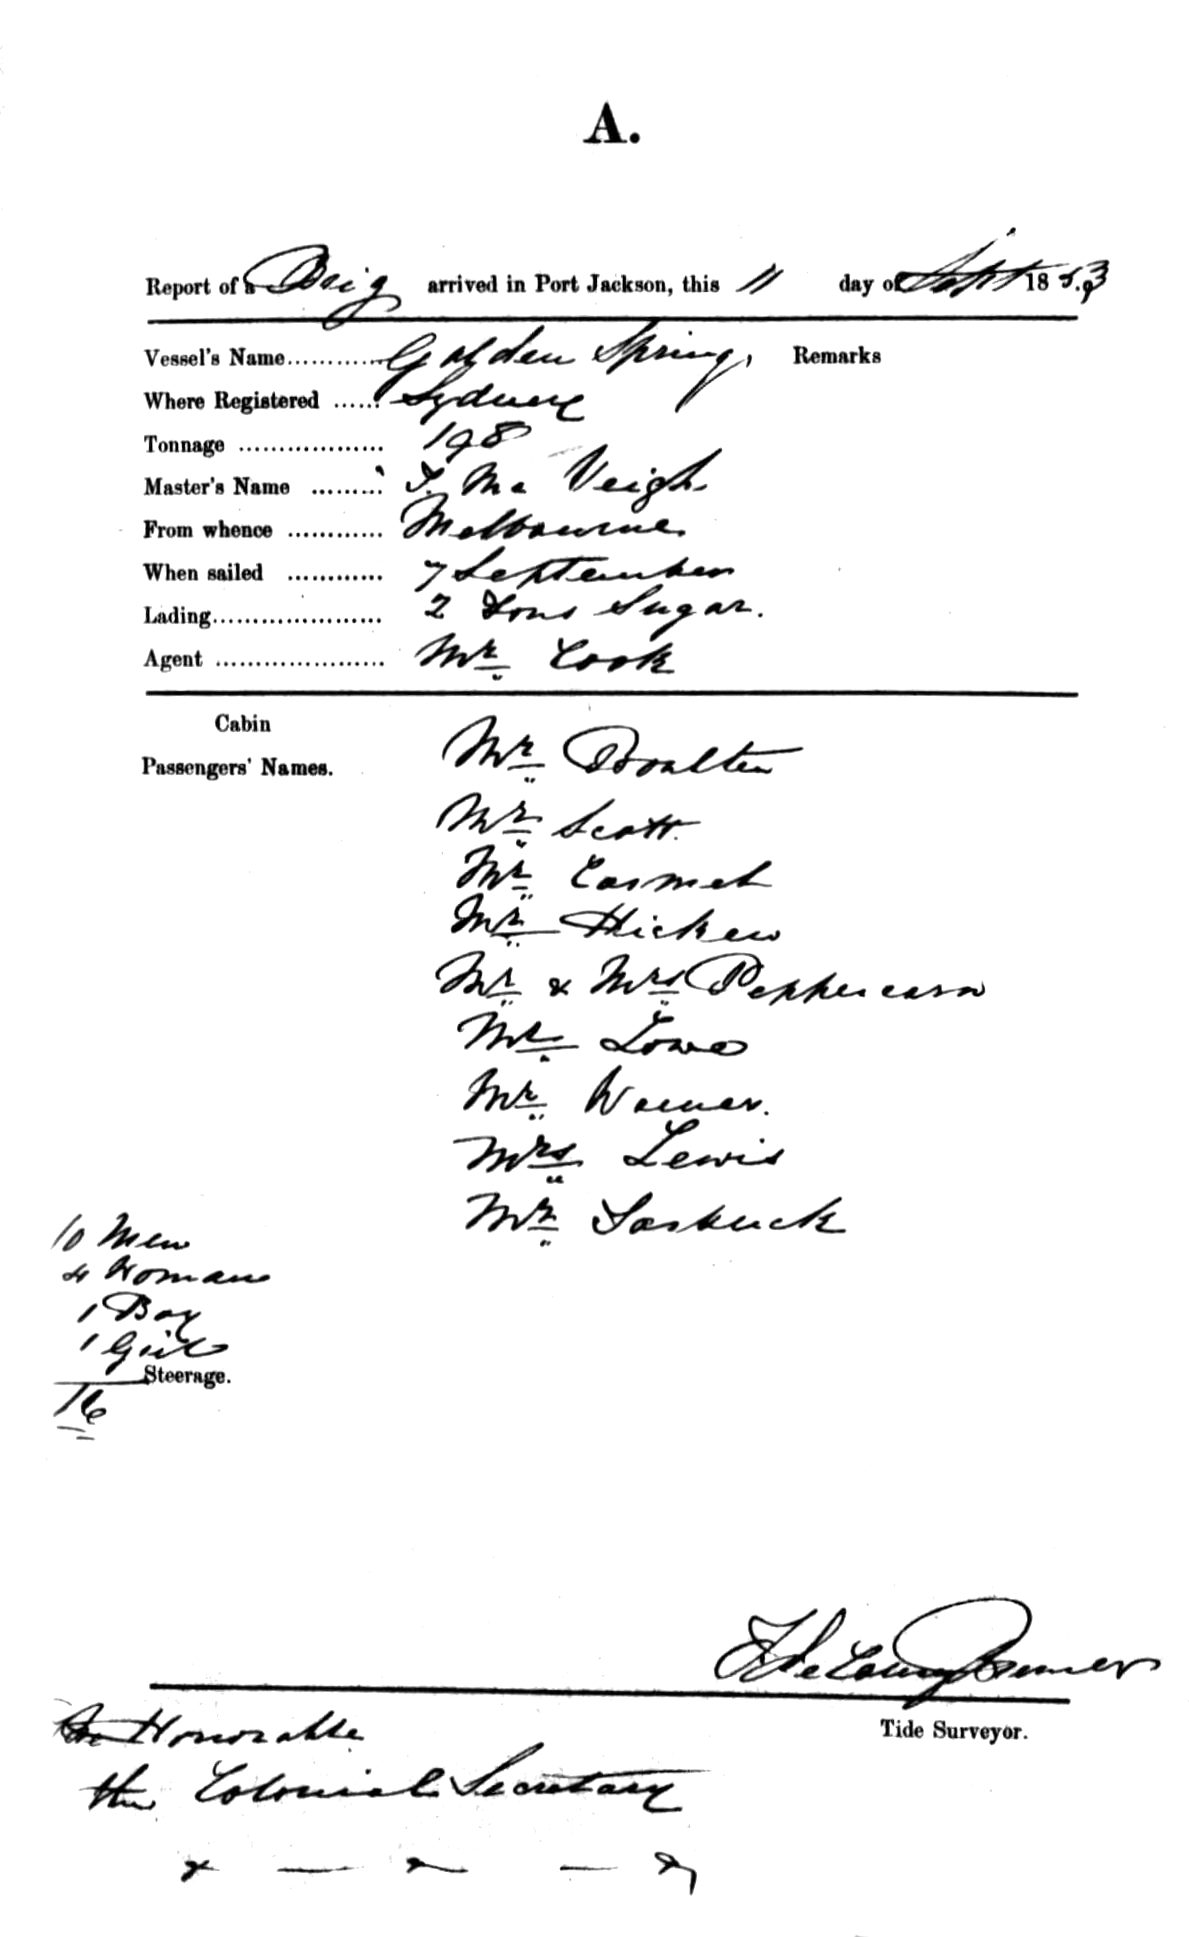 A.
Report of a Brig arrived in Port Jackson, this 11 day of Sept 1853
Vessel's Name............ Golden Spring, Remarks
Where Registered ...... Sydney
Tonnage .................. 198
Master's Name ......... J. Mc Veigh
From whence ............ Melbourne
When sailed ............ 7 September
Lading..................... 2 Tons Sugar.
Agent ..................... Mr Cook
Cabin
Passengers' Names.
Mr Boulten
Mr Scott.
Mr
Mr Hicken
Mr & Mrs Peppercorn
Mr Lowe
Mr
Mrs Lewis
Mr
10 Men
4 Woman
1 Boy
1 Girl
Steerage.
16
Tide Surveyor.
Honorable
the Colonial Secretary